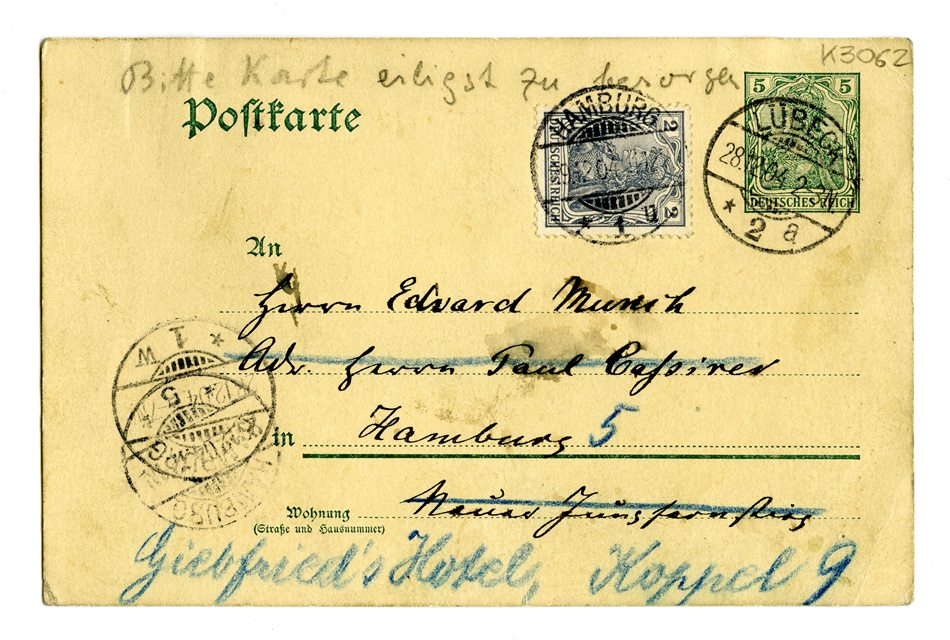 K3062
Bitte Karte eiligst zu besorgen
Postkarte
5 5
DEUTSCHES REICH
2 2
DEUTSCHES REICH
HAMBURG
* 1 u
LÜBECK
28.12.04. 2-3N
* 2 a
An
Herrn Edvard Munch
Adr. Herrn Paul Cassirer
in Hamburg 5
Wohnung Neuer Jungfernstieg
(Straße und Hausnummer)
Giebfried's Hotel, Koppel 9
HAMBURG
* 1 w
HAMBURG